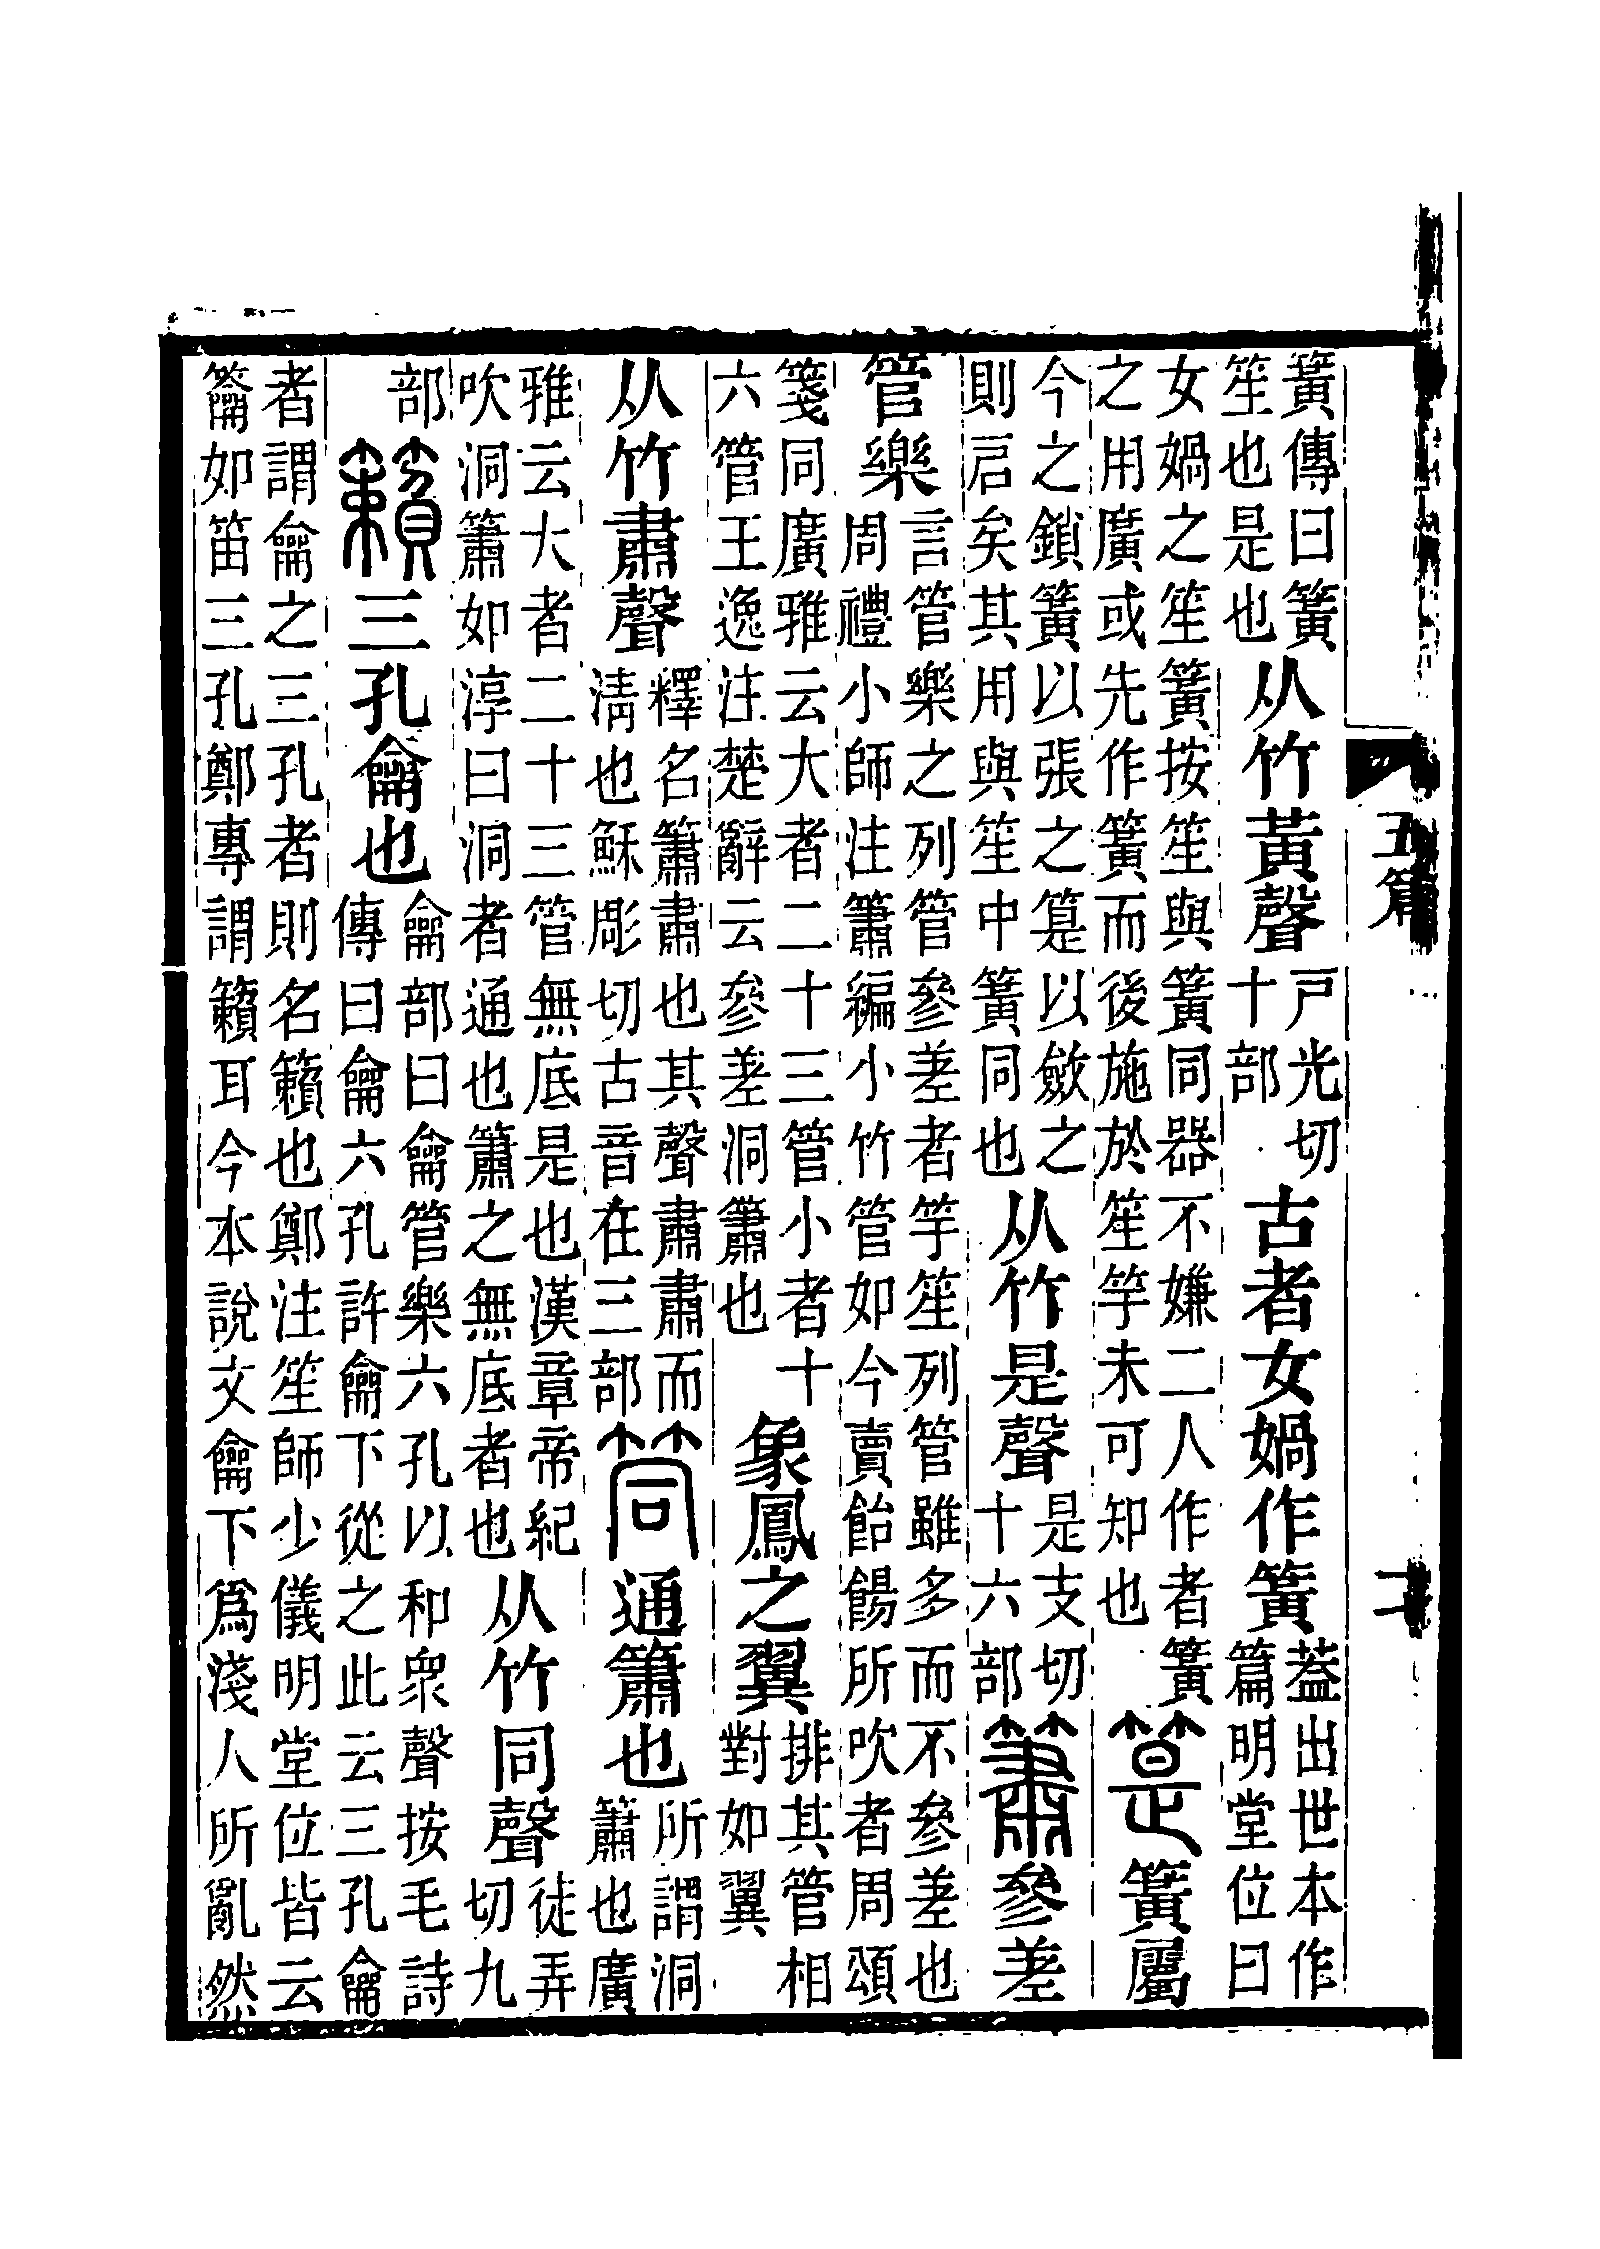 簧傳曰簧笙也是也从竹黃聲戸光切十部古者女媧作簧葢出世本作篇明堂位曰
女媧之笙簧按笙與簧同器不嫌二人作者簧之用廣或先作簧而後施於笙竽未可知也䈕簧屬
今之鎖簧以張之䈕以斂之則启矣其用與笙中簧同也从竹是聲是支切十六部簫參差
管樂言管樂之列管參差者竽笙列管雖多而不參差也周禮小師注簫編小竹管如今賣飴餳所吹者周頌
箋同廣雅云大者二十三管小者十六管王逸注楚辭云參差洞簫也象鳳之翼排其管相對如翼
从竹肅聲釋名簫肅也其聲肅肅而淸也穌彫切古音在三部筒通簫也所謂洞簫也廣
雅云大者二十三管無底是也漢章帝紀吹洞簫如淳曰洞者通也簫之無底者也从竹同聲徒弄切九
部籟三孔龠也龠部曰龠管樂六孔以和眾聲按毛詩傳曰龠六孔許龠下從之此云三孔龠
者謂龠之三孔者則名籟也鄭注笙師少儀明堂位皆云籥如笛三孔鄭專謂籟耳今本說文龠下爲淺人所亂然
五篇